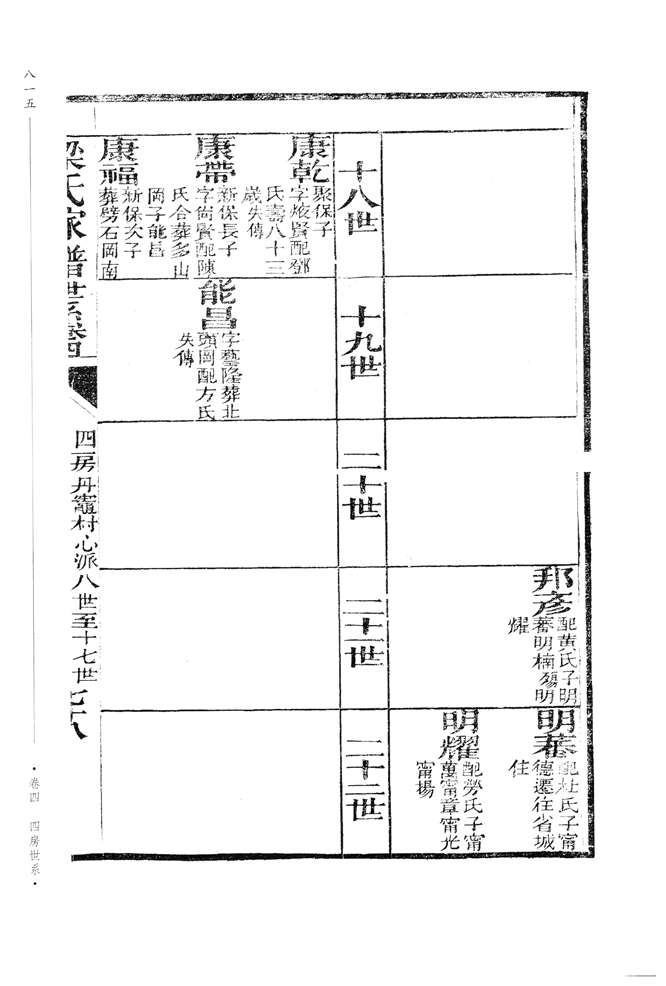 邦彥
配黃氏子明
蕃明楠殤明
燿
明蕃
配杜氏子甯
德遷往省城
住
明燿
配勞氏子甯
萬甯章甯光
甯場
十八世
十九世
二十世
二十一世
二十二世
康乾
聚保子
字焌賢配鄧
氏壽八十三
歲失傳
康帶
新保長子
字尙賢配陳
氏合葬多山
岡子能昌
康福
新保次子
葬劈石岡南
能昌
字藝隆葬北
頭岡配方氏
失傳
梁氏家譜世系卷四
四房丹竈村心派八世至十七世
七十八
八一五
·卷四 四房世系·